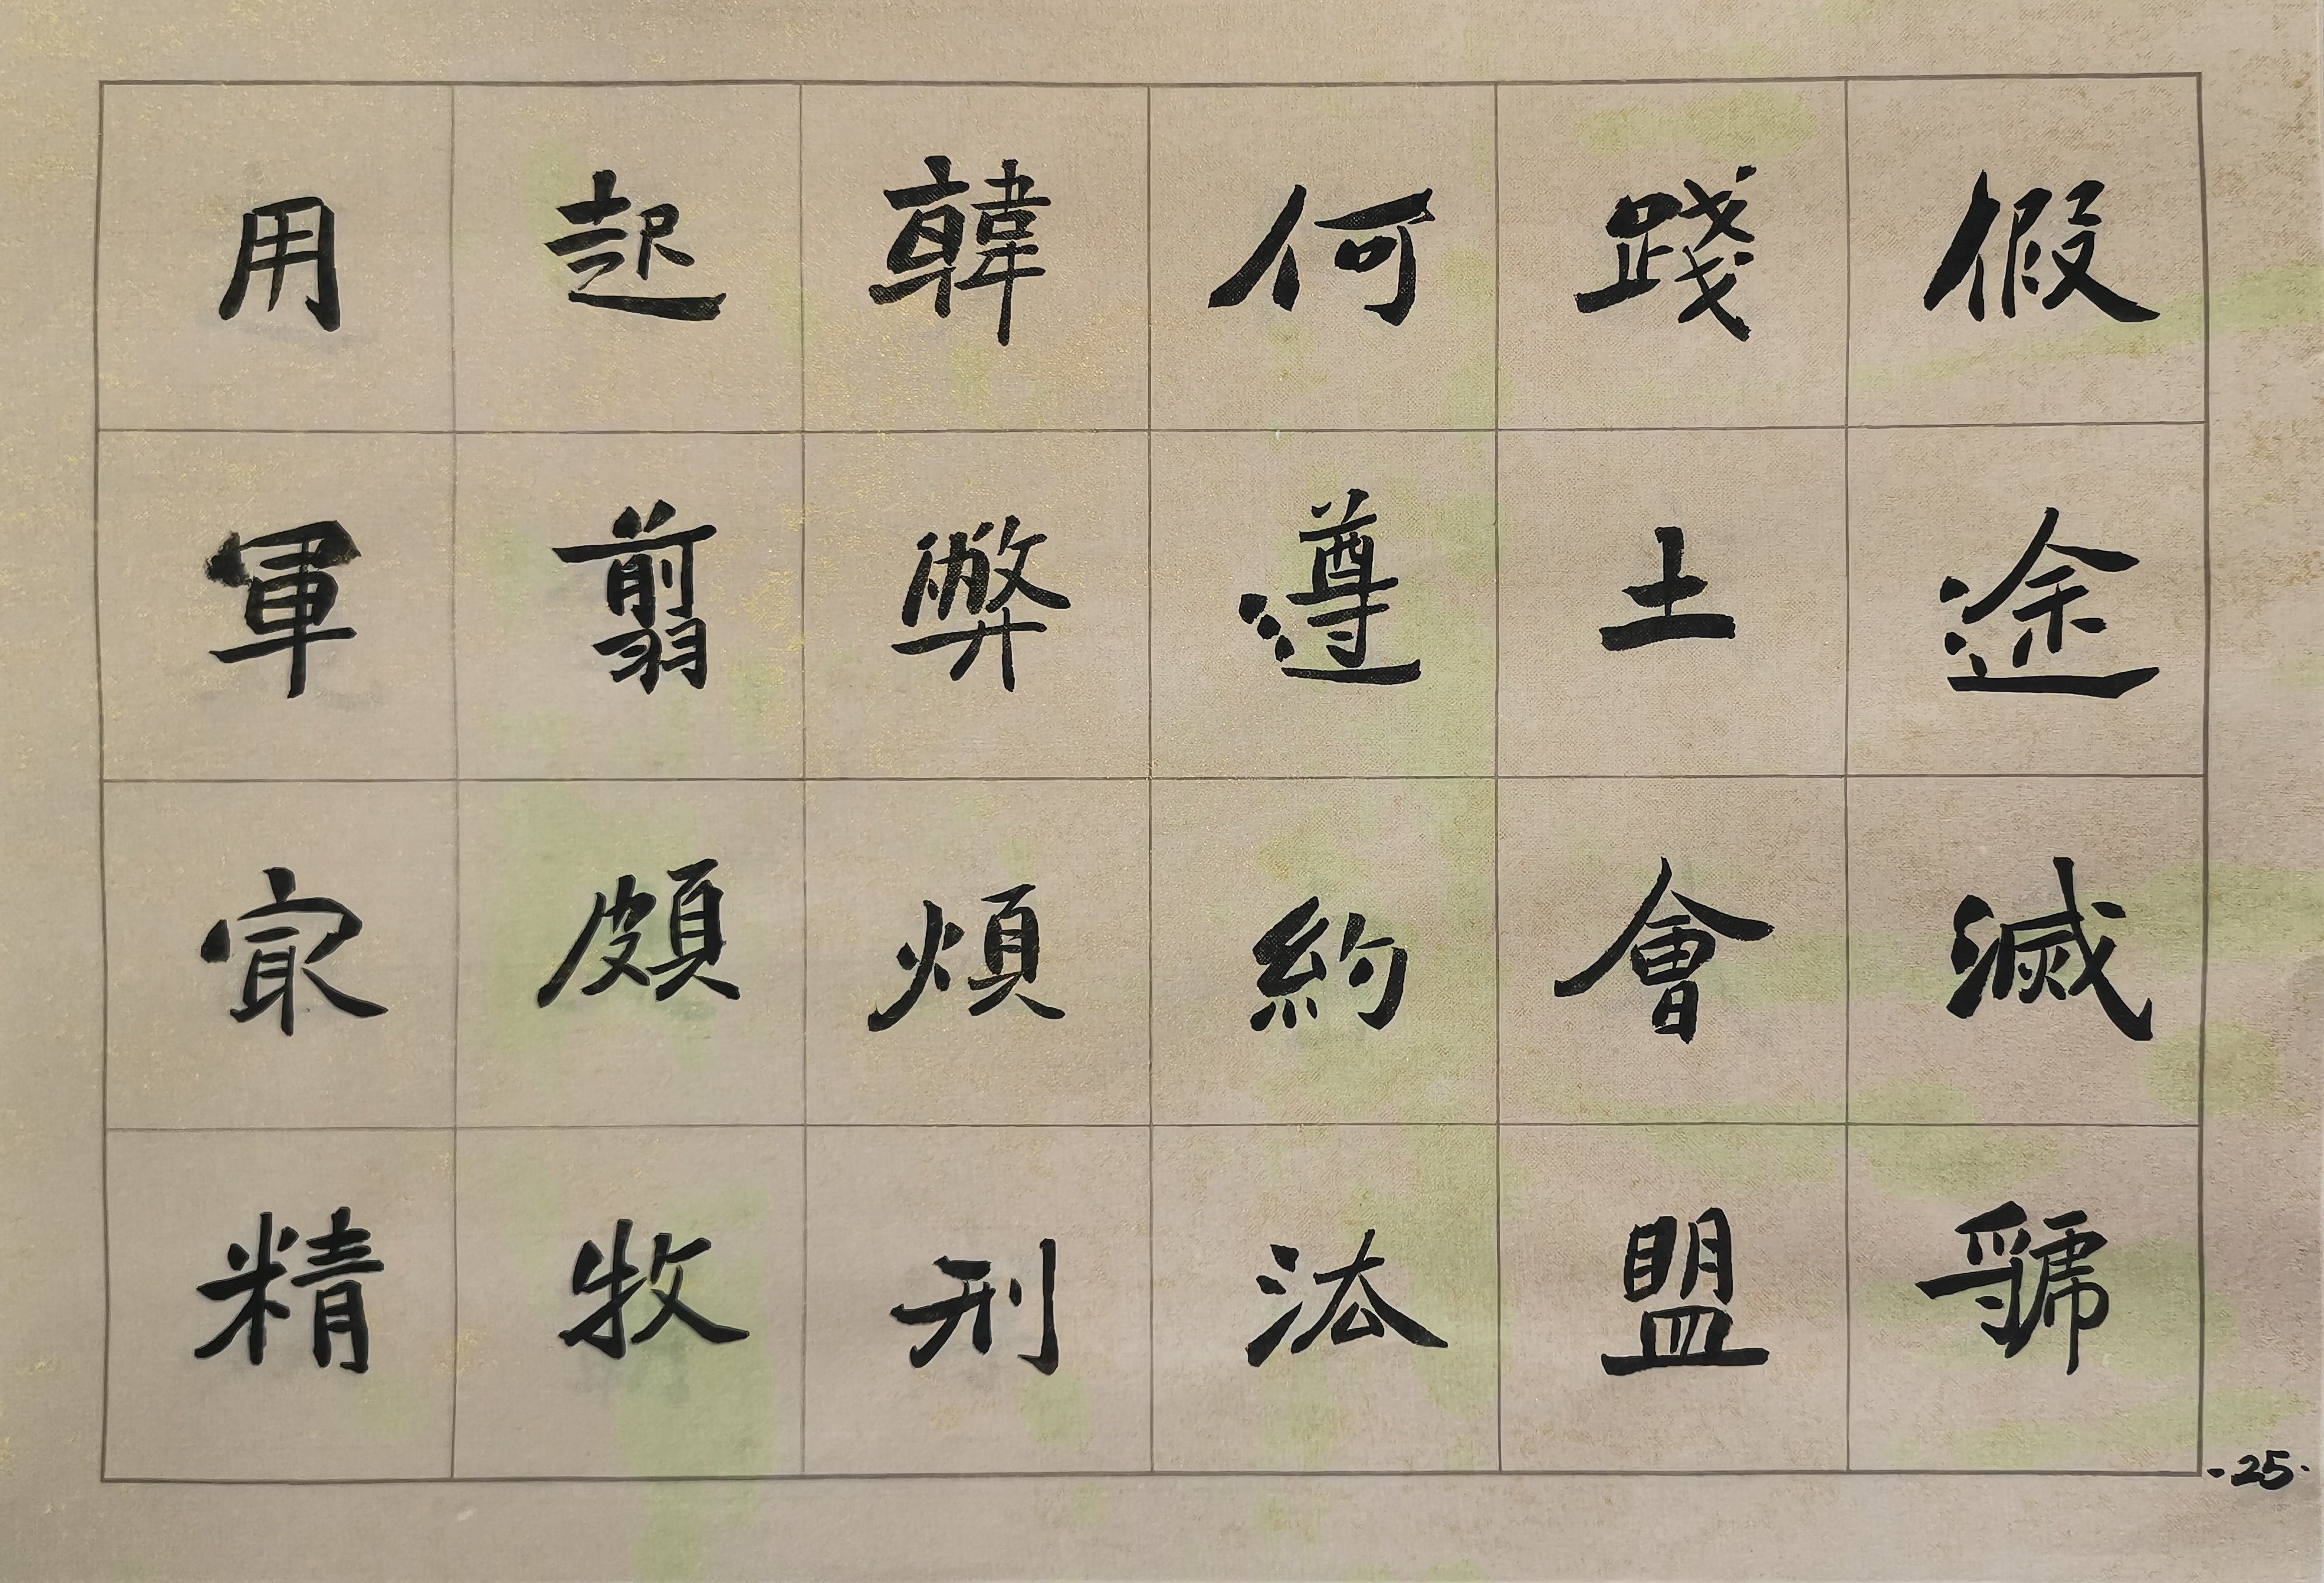 假途滅虢
踐土會盟
何遵約法
韓弊煩刑
起翦頗牧
用軍㝡精
·25·